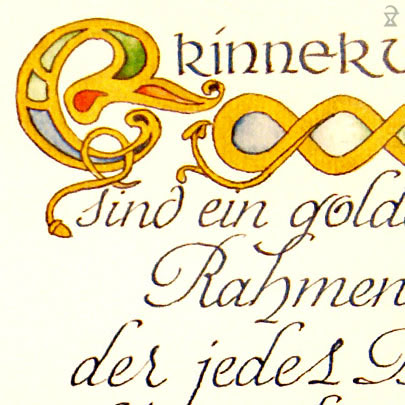 Erinneru
sind ein gold
Rahmen
der jedes B